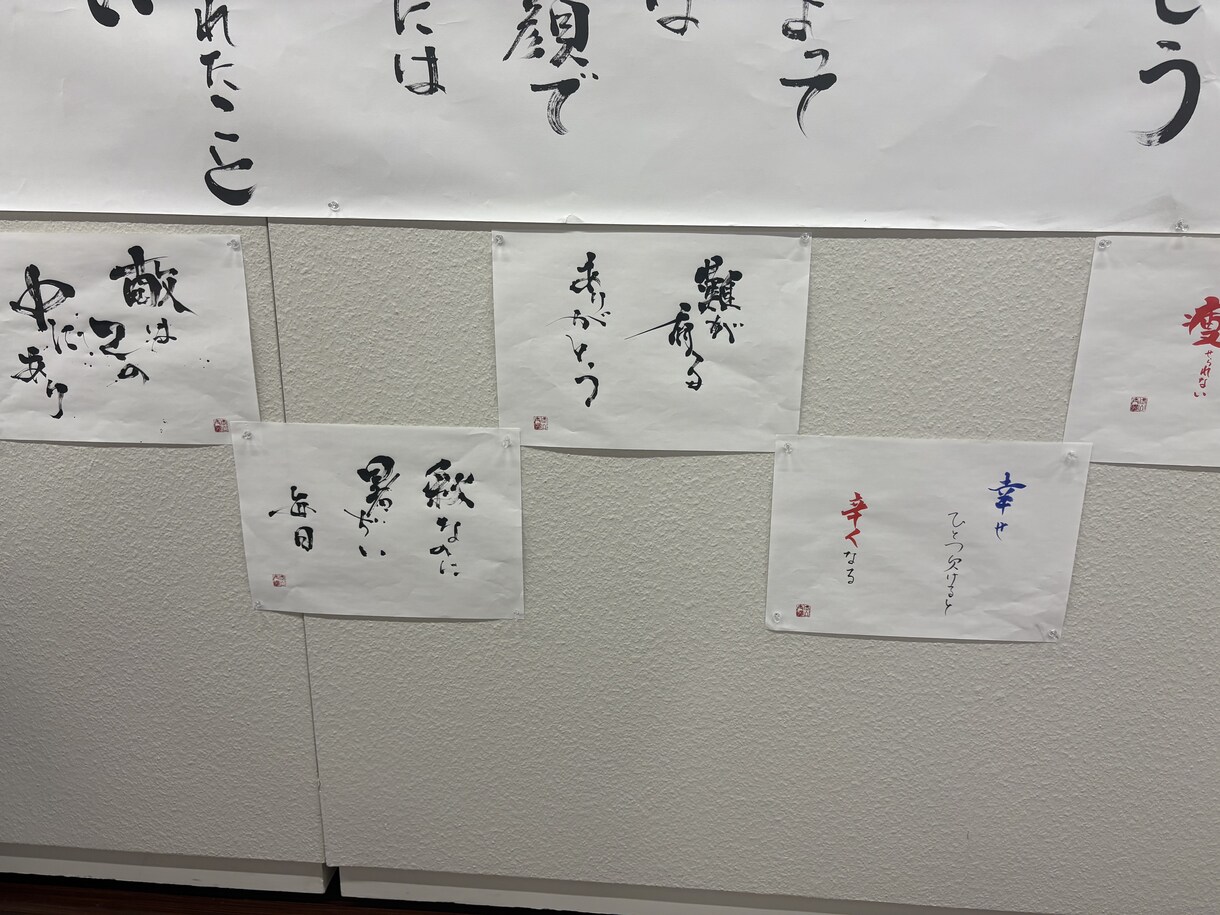 う
よって
な
顔で
には
れたこと
い
敵は
この
中に
あり
難が
有る
ありがとう
痩
せられない
秋なのに
暑い
毎日
幸せ
ひとつ欠けると
辛く
なる